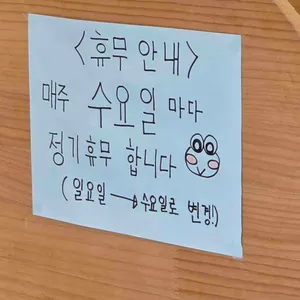 <휴무 안내>
매주 수요일 마다
정기휴무 합니다
(일요일 → 수요일로 변경!)